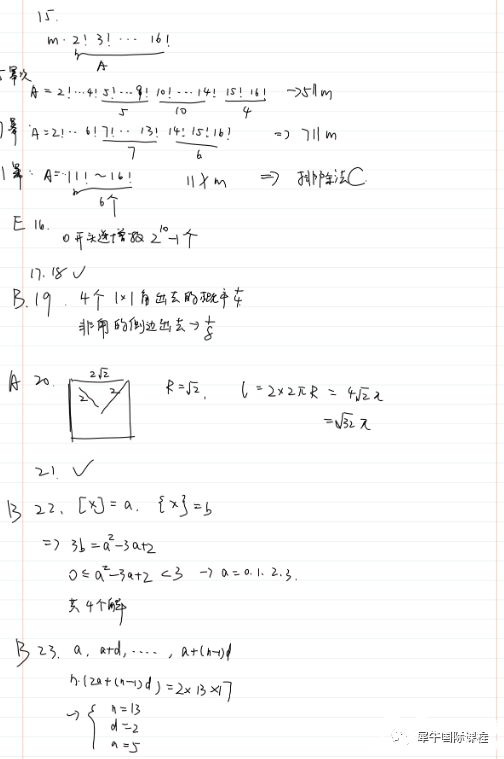 15.
m · 2! 3! ⋯ 16!
A
幂次
A = 2!⋯4! 5!⋯9! 10!⋯14! 15! 16! → 5||m
5 10 4
幂: A = 2!⋯6! 7!⋯13! 14! 15! 16! ⇒ 7||m
7 6
幂: A = 11! ~ 16! 11∤m ⇒ 排除法 C
6个
E 16.
0开头递增数 2^10 - 1个
17. 18 ✓
B. 19. 4个 1×1 角出去的概率 1/4
非角的侧边出去 → 1/8
A 20. 2√2
2 2
R = √2. l = 2×2πR = 4√2 π
= √32 π
21. ✓
B 22. [x] = a. {x} = b
⇒ 3b = a² - 3a + 2
0 ≤ a² - 3a + 2 < 3 → a = 0. 1. 2. 3.
共4个解
B 23. a, a+d, ⋯⋯, a+(n-1)d
n·(2a+(n-1)d) = 2×13×17
→ { n = 13
d = 2
a = 5
犀牛国际课程